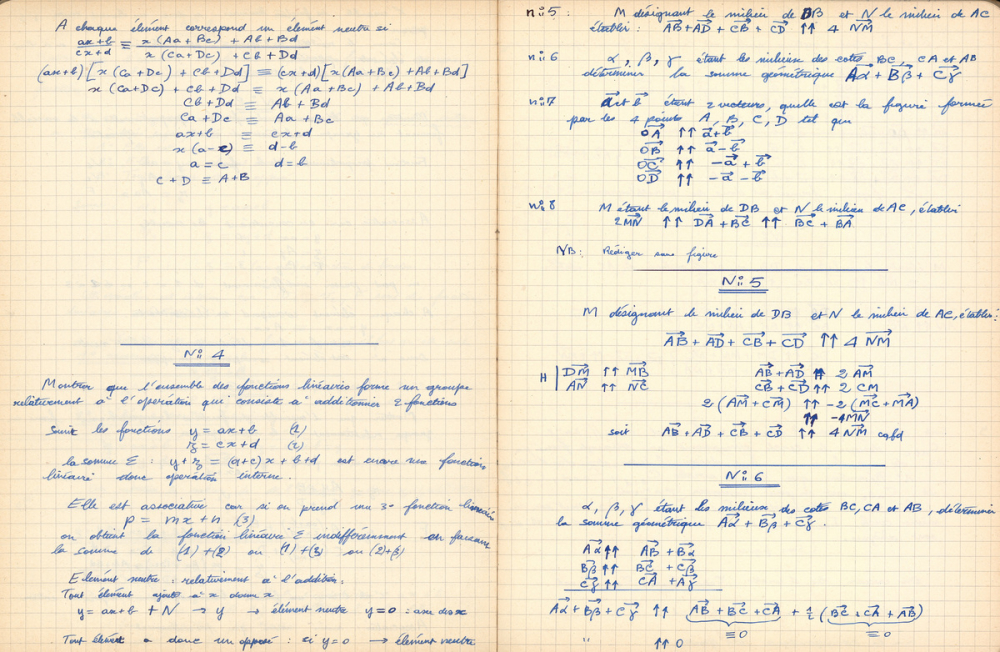 A chaque élément correspond un élément neutre si
ax+b / cx+d ≡ x(Aa+Bc) + Ab+Bd / x(Ca+Dc) + Cb+Dd
(ax+b)[x(Ca+Dc) + Cb+Dd] ≡ (cx+d)[x(Aa+Bc)+Ab+Bd]
x(Ca+Dc) + Cb+Dd ≡ x(Aa+Bc) + Ab+Bd
Cb+Dd ≡ Ab+Bd
Ca+Dc ≡ Aa+Bc
ax+b ≡ cx+d
x(a-c) ≡ d-b
a=c d=b
C+D ≡ A+B
N° 4
Montrer que l'ensemble des fonctions linéaires forme un groupe
relativement à l'opération qui consiste à additionner 2 fonctions
les fonctions y = ax+b (1)
z = cx+d (2)
la somme Σ : y+z = (a+c)x + b+d est encore une fonction
linéaire donc opération interne.
Elle est associative car si on prend une 3e fonction linéaire
p = mx+n (3)
on obtient la fonction linéaire Σ indifféremment en faisant
la somme de (1)+(2) ou (1)+(3) ou (2)+(3)
Elément neutre : relativement à l'addition :
Tout élément ajouté à x donne x
y = ax+b + N → y → élément neutre y=0 : axe des x
Tout élément a donc un opposé : si y=0 → élément neutre
n° 5 : M désignant le milieu de DB et N le milieu de AC
établir : AB+AD + CB + CD ↑↑ 4 NM
n° 6 α, β, γ étant les milieux des cotés BC, CA et AB
déterminer la somme géométrique Aα + Bβ + Cγ
n° 7 a et b étant 2 vecteurs, quelle est la figure formée
par les 4 points A, B, C, D tel que
OA ↑↑ a+b
OB ↑↑ a-b
OC ↑↑ -a+b
OD ↑↑ -a-b
n° 8 M étant le milieu de DB et N le milieu de AC, établir
2MN ↑↑ DA+BC ↑↑ BC + BA
NB : Rédiger sans figure
N° 5
M désignant le milieu de DB et N le milieu de AC, établir :
AB + AD + CB + CD ↑↑ 4 NM
H | DM ↑↑ MB AB+AD ↑↑ 2 AM
AN ↑↑ NC CB+CD ↑↑ 2 CM
2(AM+CM) ↑↑ -2(MC+MA)
↑↑ -4MN
soit AB+AD + CB + CD ↑↑ 4 NM cqfd
N° 6
α, β, γ étant les milieux des cotés BC, CA et AB, déterminer
la somme géométrique Aα + Bβ + Cγ.
Aα ↑↑ AB + Bα
Bβ ↑↑ BC + Cβ
Cγ ↑↑ CA + Aγ
Aα + Bβ + Cγ ↑↑ AB + BC + CA + 1/2 (BC + CA + AB)
≡0 ≡0
" ↑↑ 0